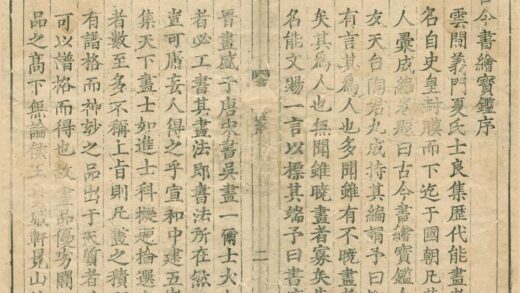 今書繪寶鑑序
雲間義門夏氏士良集歷代能畫
名自史皇封膜而下迄于國朝凡
人彙成編名題曰古今書繪寶鑑
友天台陶君九成持其編謂予曰
有言其為人也多聞雖有不曉畫
矣其為人也無聞雖曉畫者寡矣
名能文賜一言以標其端予曰書
二
晉畫盛于唐宋書與畫一爾士大
者必工書其畫法即書法所在然
豈可庸妄人得之乎宣和中建五
集天下畫士如進士科掄選
者數至多不稱上旨則凡畫之積
有譜格而神妙之品出于天質者
可以譜格而得也故畫品優劣關
品之高下無論侯王戚軒冕山